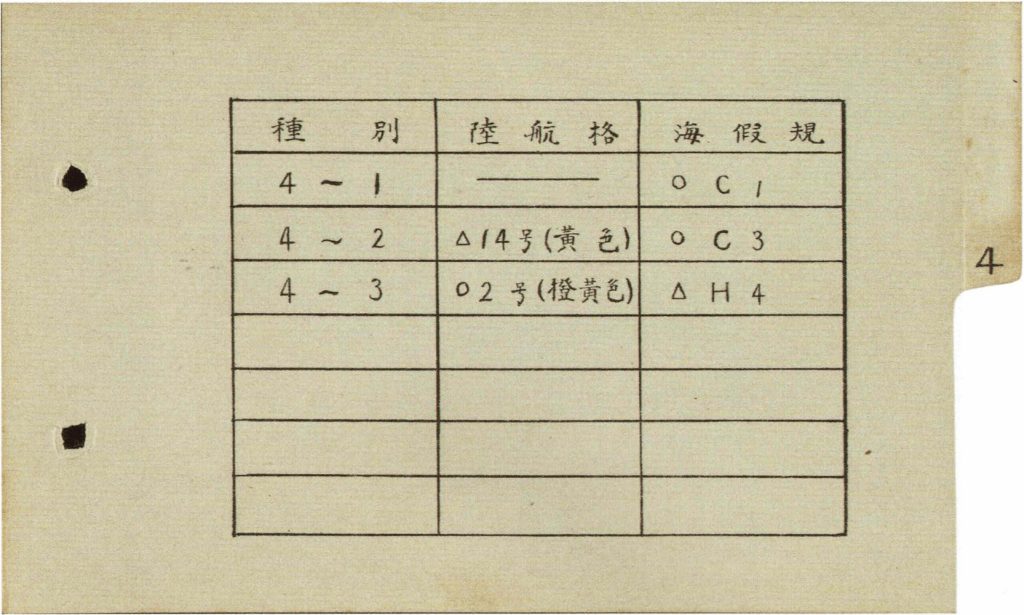 種 別 陸 航 格 海 假 規
4 ~ 1 ——— ○ C 1
4 ~ 2 △14号(黃 色) ○ C 3
4 ~ 3 ○2 号(橙黃色) △ H 4
4